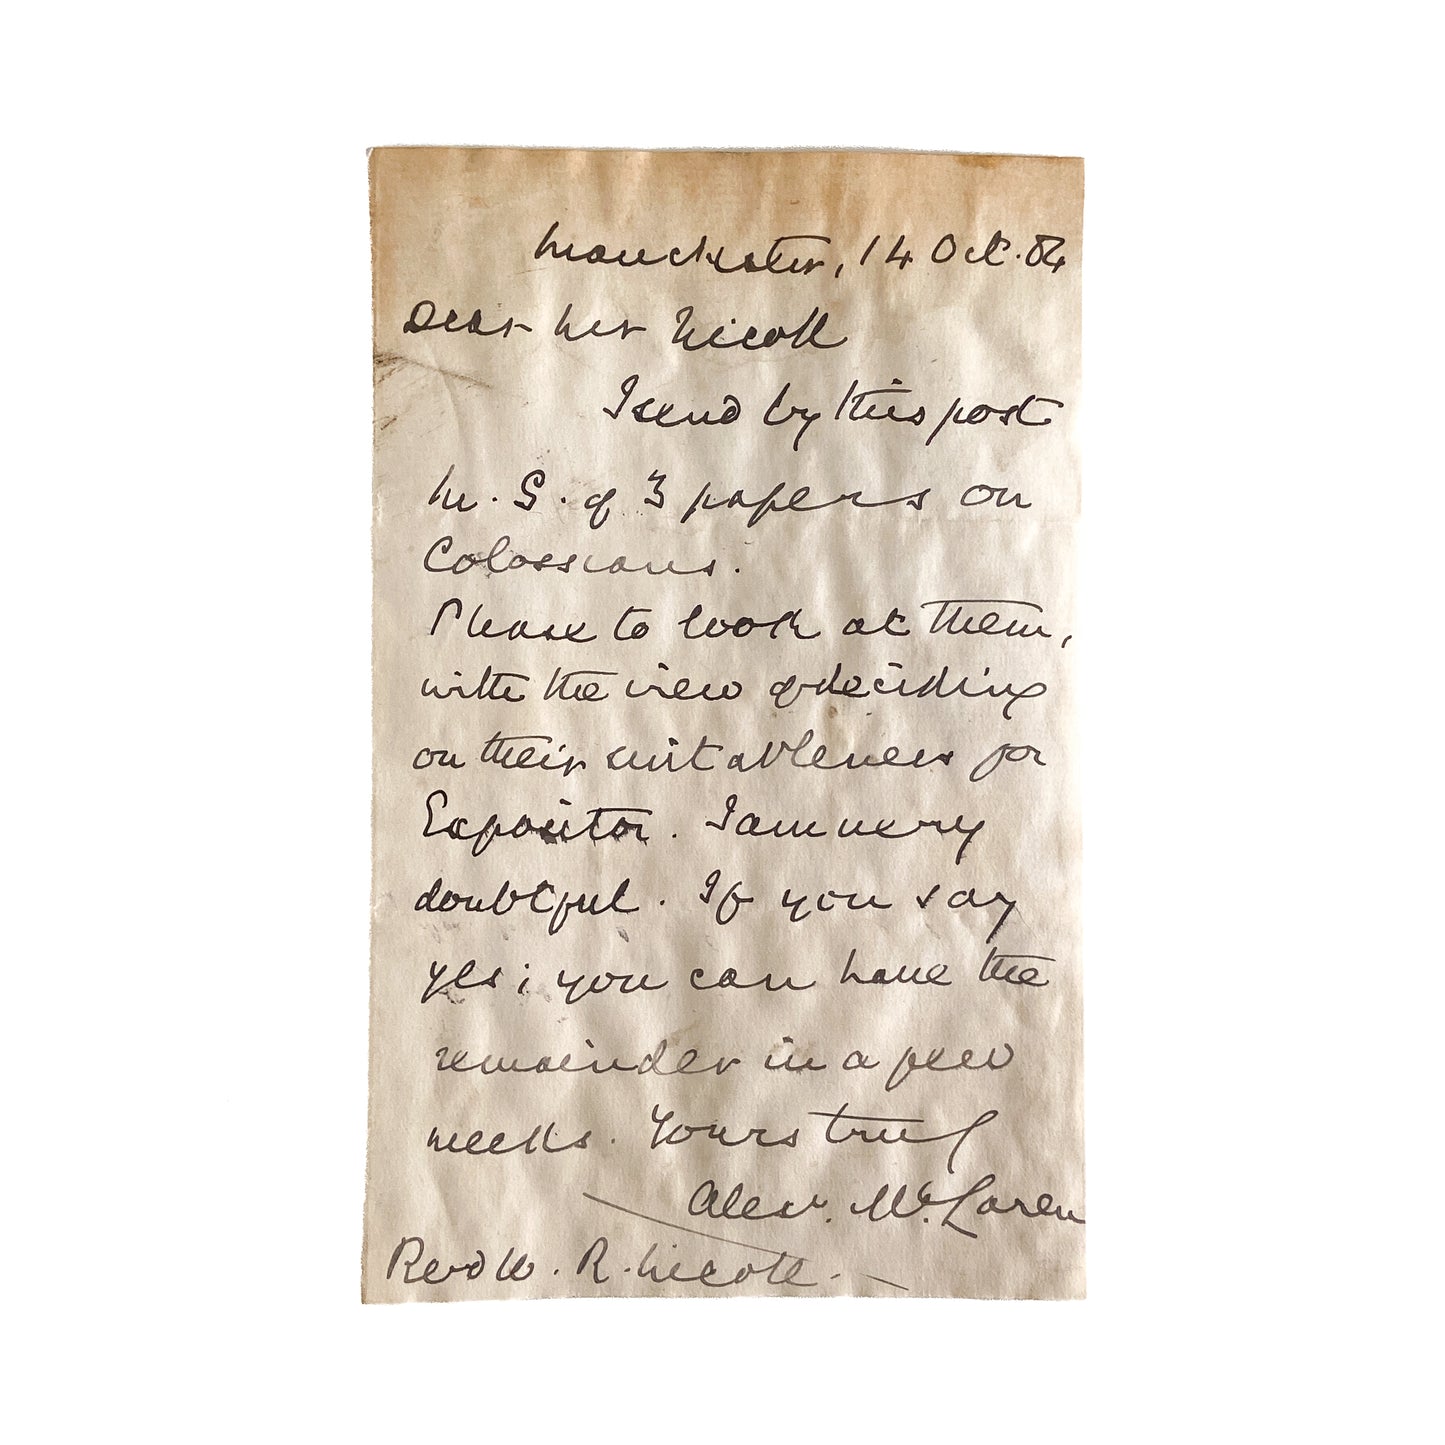 Manchester, 14 Oct. 84
Dear Mr Nicoll
I send by this post
M.S. of 3 papers on
Colossians.
Please to look at them,
with the view of deciding
on their suitableness for
Expositor. I am very
doubtful. If you say
yes; you can have the
remainder in a few
weeks. Yours truly
Alexr. McLaren
Revd W. R. Nicoll.